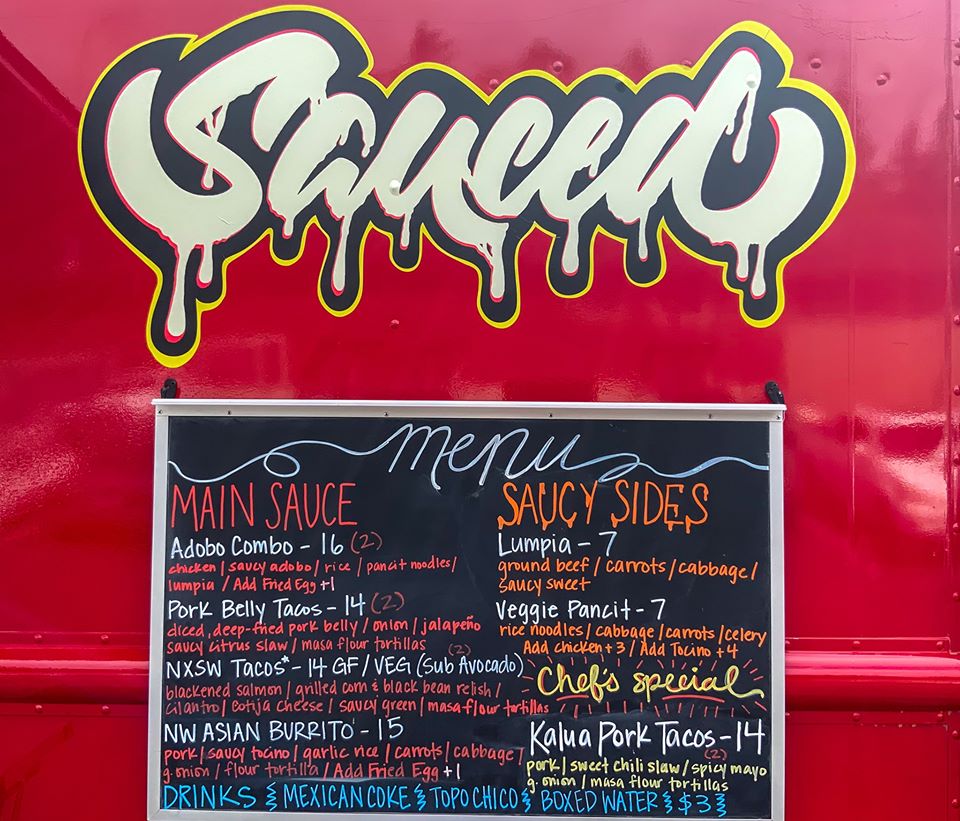 Sauced
menu
MAIN SAUCE
Adobo Combo - 16 (2)
chicken / saucy adobo / rice / pancit noodles /
lumpia / Add Fried Egg +1
Pork Belly Tacos - 14 (2)
diced, deep-fried pork belly / onion / jalapeño
saucy citrus slaw / masa flour tortillas
(2)
NXSW Tacos* - 14 GF / VEG (Sub Avocado)
blackened salmon / grilled corn & black bean relish /
cilantro / cotija cheese / saucy green / masa flour tortillas
NW ASIAN BURRITO - 15
pork / saucy tocino / garlic rice / carrots / cabbage /
g. onion / flour tortilla / Add Fried Egg +1
SAUCY SIDES
Lumpia - 7
ground beef / carrots / cabbage /
saucy sweet
Veggie Pancit - 7
rice noodles / cabbage / carrots / celery
Add chicken + 3 / Add Tocino + 4
Chef's special
Kalua Pork Tacos - 14
(2)
pork / sweet chili slaw / spicy mayo
g. onion / masa flour tortillas
DRINKS MEXICAN COKE TOPO CHICO BOXED WATER $3